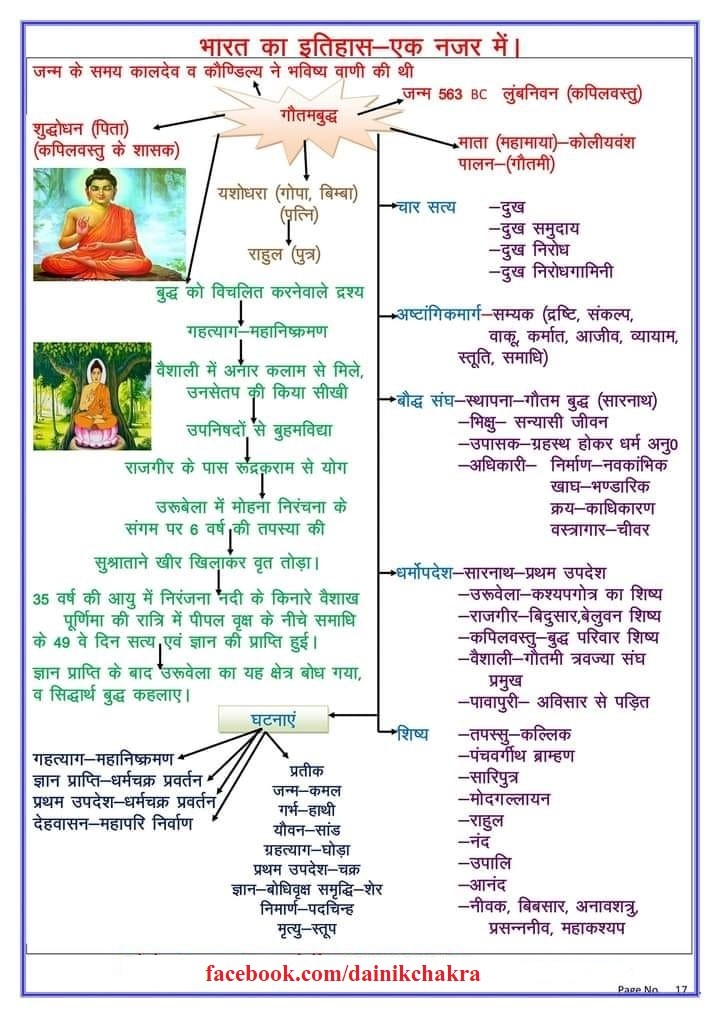 भारत का इतिहास–एक नजर में।
जन्म के समय कालदेव व कौण्डिल्य ने भविष्य वाणी की थी
जन्म 563 BC लुंबनिवन (कपिलवस्तु)
गौतमबुद्ध
शुद्धोधन (पिता)
(कपिलवस्तु के शासक)
माता (महामाया)–कोलीयवंश
पालन–(गौतमी)
यशोधरा (गोपा, बिम्बा)
(पत्नि)
राहुल (पुत्र)
बुद्ध को विचलित करनेवाले द्रश्य
गहत्याग–महानिष्क्रमण
वैशाली में अनार कलाम से मिले,
उनसेतप की किया सीखी
उपनिषदों से बुहमविद्या
राजगीर के पास रूद्रकराम से योग
उरूबेला में मोहना निरंचना के
संगम पर 6 वर्ष की तपस्या की
सुश्राताने खीर खिलाकर वृत तोड़ा।
35 वर्ष की आयु में निरंजना नदी के किनारे वैशाख
पूर्णिमा की रात्रि में पीपल वृक्ष के नीचे समाधि
के 49 वे दिन सत्य एवं ज्ञान की प्राप्ति हुई।
ज्ञान प्राप्ति के बाद उरूवेला का यह क्षेत्र बोध गया,
व सिद्धार्थ बुद्ध कहलाए।
चार सत्य –दुख
–दुख समुदाय
–दुख निरोध
–दुख निरोधगामिनी
अष्टांगिकमार्ग–सम्यक (द्रष्टि, संकल्प,
वाकू, कर्मात, आजीव, व्यायाम,
स्तूति, समाधि)
बौद्ध संघ–स्थापना–गौतम बुद्ध (सारनाथ)
–मिक्षु– सन्यासी जीवन
–उपासक–ग्रहस्थ होकर धर्म अनु0
–अधिकारी– निर्माण–नवकांभिक
खाघ–भण्डारिक
क्रय–काधिकारण
वस्त्रागार–चीवर
धर्मोपदेश–सारनाथ–प्रथम उपदेश
–उरूवेला–कश्यपगोत्र का शिष्य
–राजगीर–बिदुसार,बेलुवन शिष्य
–कपिलवस्तु–बुद्ध परिवार शिष्य
–वैशाली–गौतमी त्रवज्या संघ
प्रमुख
–पावापुरी– अविसार से पड़ित
शिष्य –तपस्सु–कल्लिक
–पंचवर्गीथ ब्राम्हण
–सारिपुत्र
–मोदगल्लायन
–राहुल
–नंद
–उपालि
–आनंद
–नीवक, बिबसार, अनावशत्रु,
प्रसन्ननीव, महाकश्यप
घटनाएं
गहत्याग–महानिष्क्रमण
ज्ञान प्राप्ति–धर्मचक्र प्रवर्तन
प्रथम उपदेश–धर्मचक्र प्रवर्तन
देहवासन–महापरि निर्वाण
प्रतीक
जन्म–कमल
गर्भ–हाथी
यौवन–सांड
ग्रहत्याग–घोड़ा
प्रथम उपदेश–चक्र
ज्ञान–बोधिवृक्ष समृद्धि–शेर
निमार्ण–पदचिन्ह
मृत्यु–स्तूप
facebook.com/dainikchakra
Page No. 17